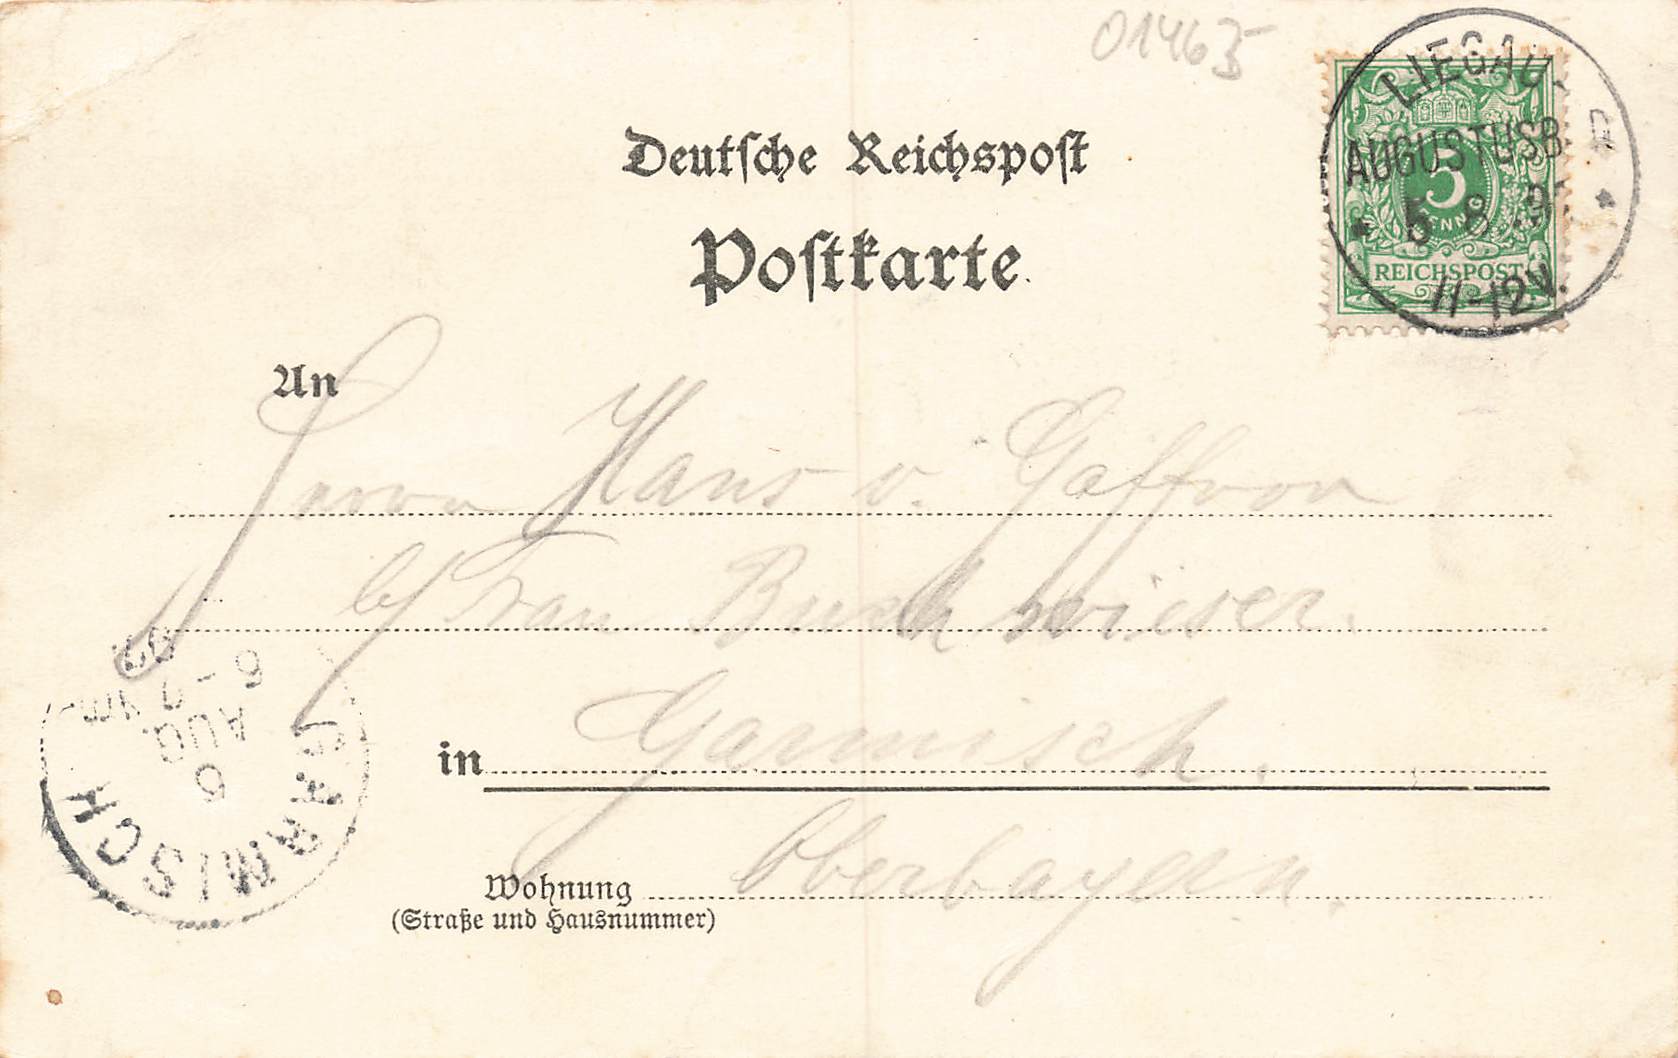 01465
Deutsche Reichspost
Postkarte
LIEGAU-
AUGUSTUSB.
* 5 8. 9 *
11-12V.
5
PFENNIG
REICHSPOST
An
Herrn Hans v. Gaffron
b/ Frau Buchwieser.
in Garmisch.
Oberbayern.
Wohnung
(Straße und Hausnummer)
GARMISCH
6
AUG.